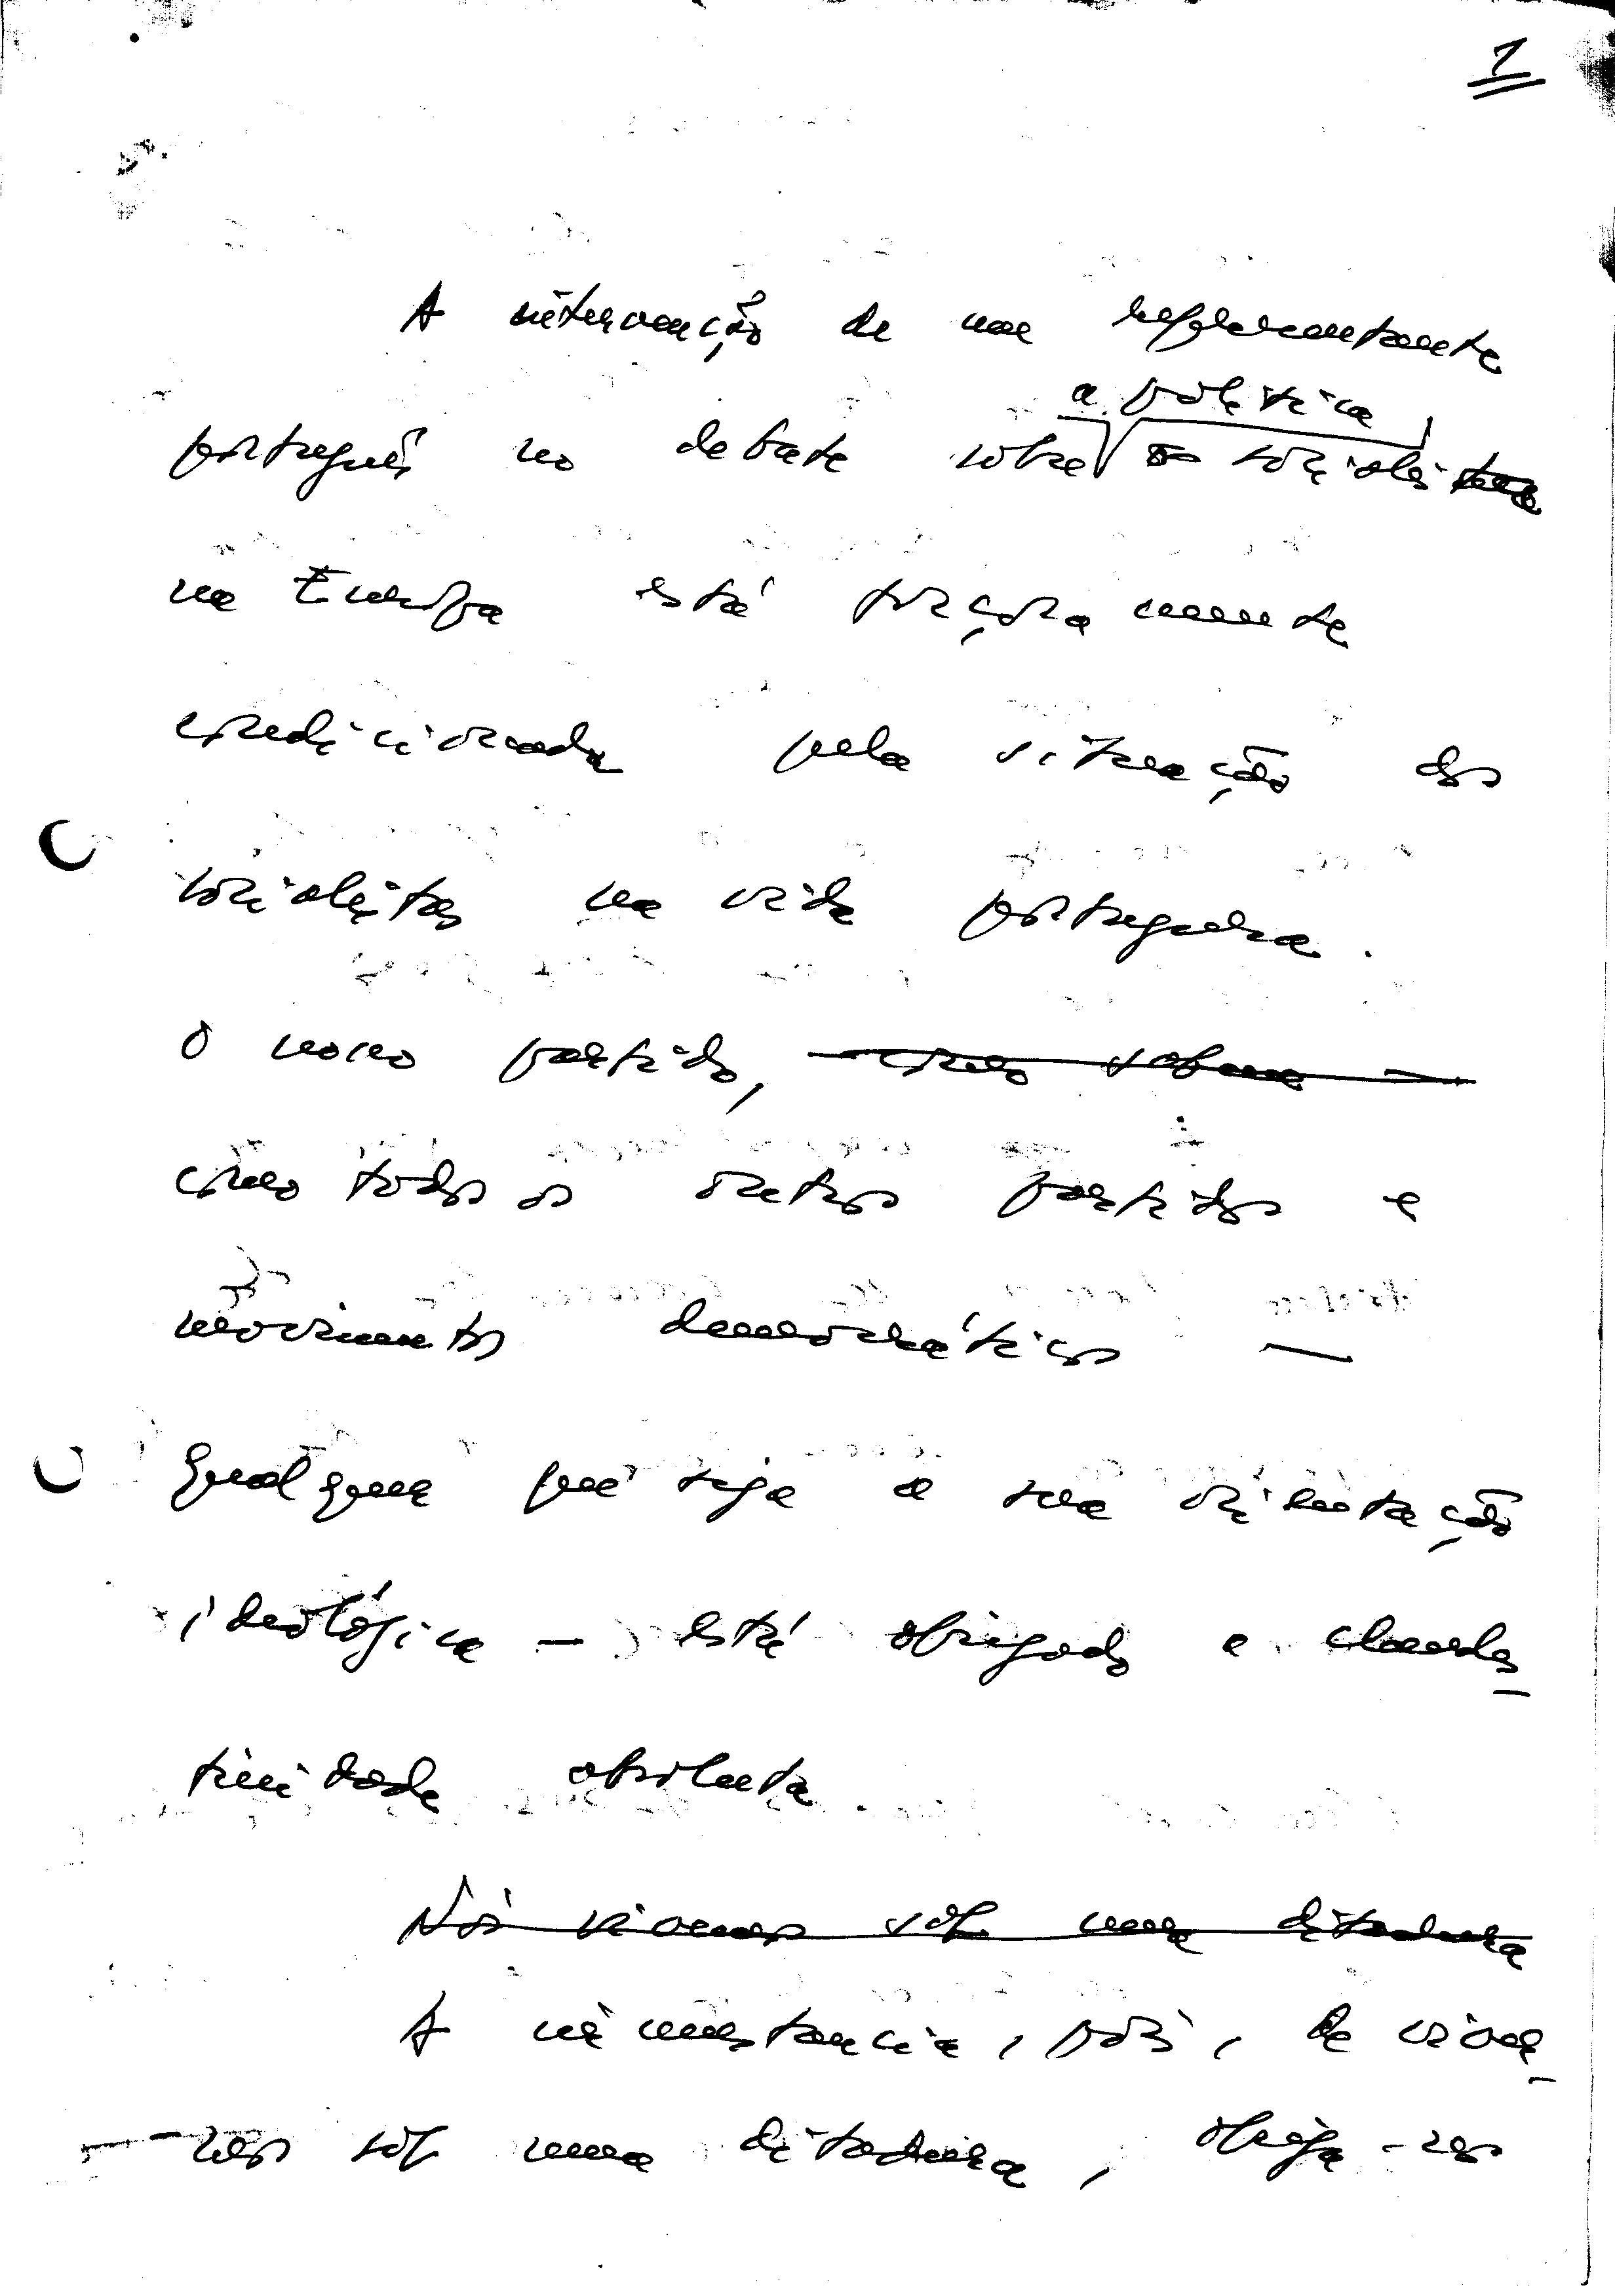 1
A intervenção de um representante
a política
português no debate sobre os socialistas
na Europa está forçosamente
condicionada pela situação dos
socialistas na vida portuguesa.
O nosso partido, como sabem
como todos os outros partidos e
movimentos democráticos —
qualquer que seja a sua orientação
ideológica — está obrigado a clandes-
tinidade absoluta.
Nós vivemos sob uma ditadura
A circunstância, pois, de viver-
mos sob uma ditadura, obriga-nos